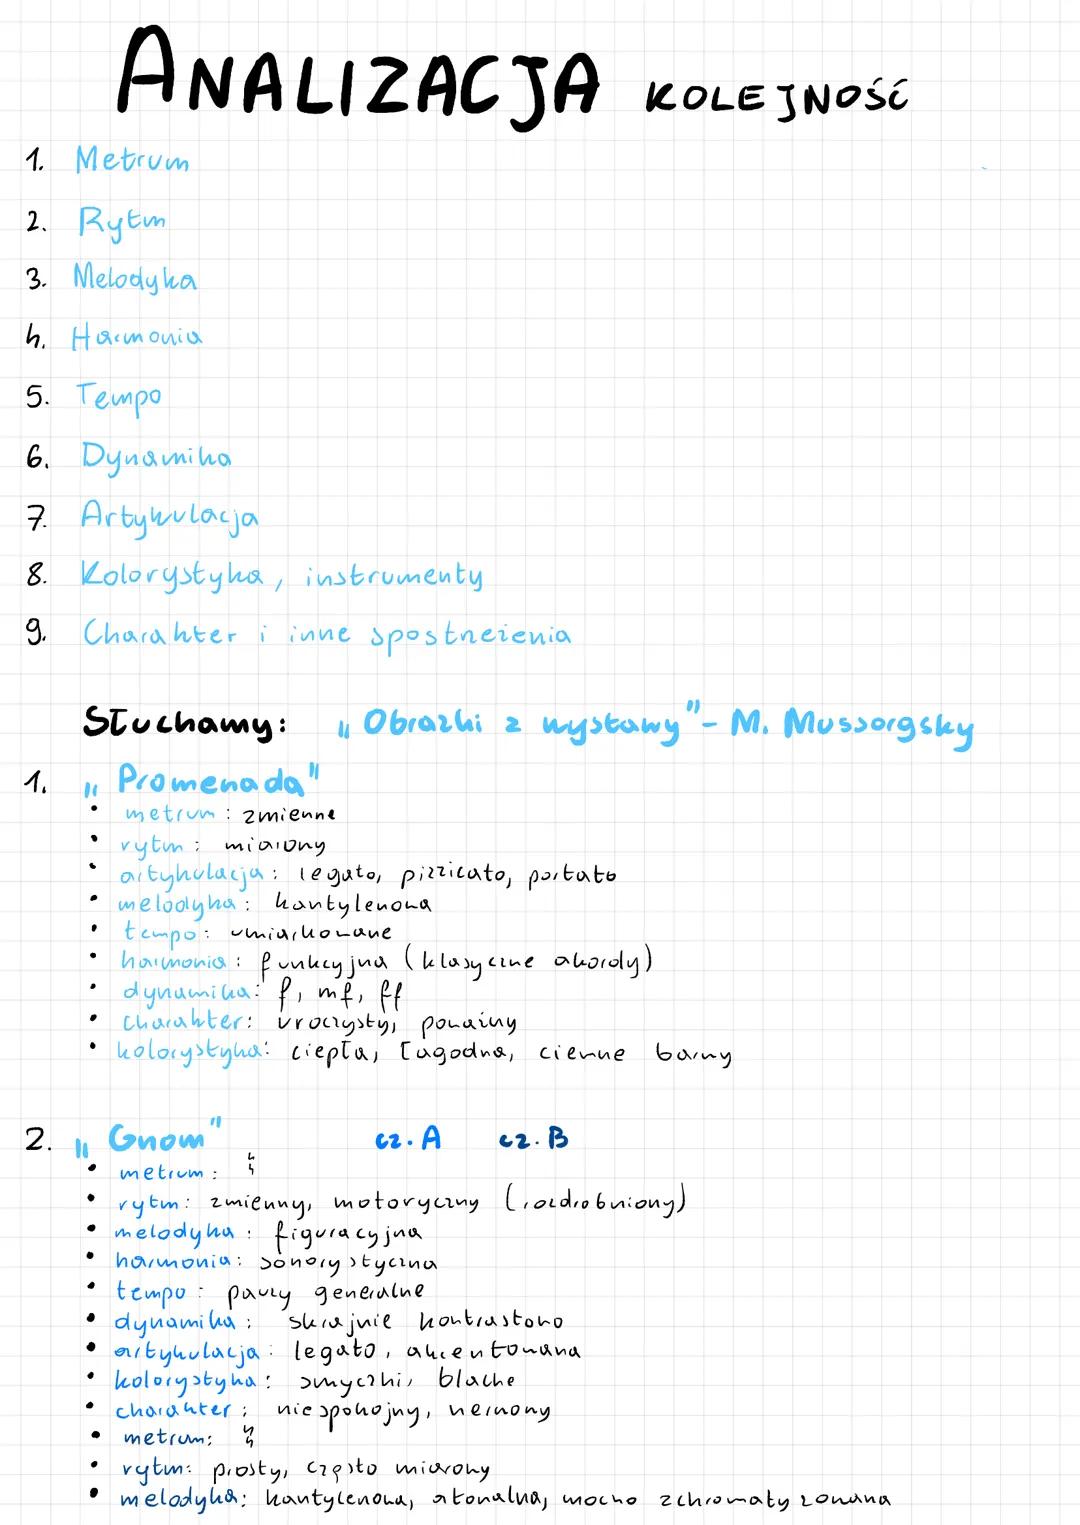 ANALIZACJA KOLEJNOŚĆ
1. Metrum
2. Rytm
3. Melodyka
4. Harmonia
5. Tempo
6. Dynamika
7. Artykulacja
8. Kolorystyka, instrumenty
9. Charakter i inne spostrzeżenia
Słuchamy: „Obrazki z wystawy" - M. Mussorgsky
1. „Promenada"
• metrum: zmienne
• rytm: miarowy
• artykulacja: legato, pizzicato, portato
• melodyka: kantylenowa
• tempo: umiarkowane
• harmonia: funkcyjna (klasyczne akordy)
• dynamika: f, mf, ff
• charakter: uroczysty, poważny
• kolorystyka: ciepła, łagodna, ciemne barwy
2. „Gnom" cz. A cz. B
• metrum:
• rytm: zmienny, motoryczny (rozdrobniony)
• melodyka: figuracyjna
• harmonia: sonorystyczna
• tempo: pauzy generalne
• dynamika: skrajnie kontrastowo
• artykulacja: legato, akcentowana
• kolorystyka: smyczki, blache
• charakter: niespokojny, nerwowy
• metrum:
• rytm: prosty, często miarowy
• melodyka: kantylenowa, atonalna, mocno zchromatyzowana